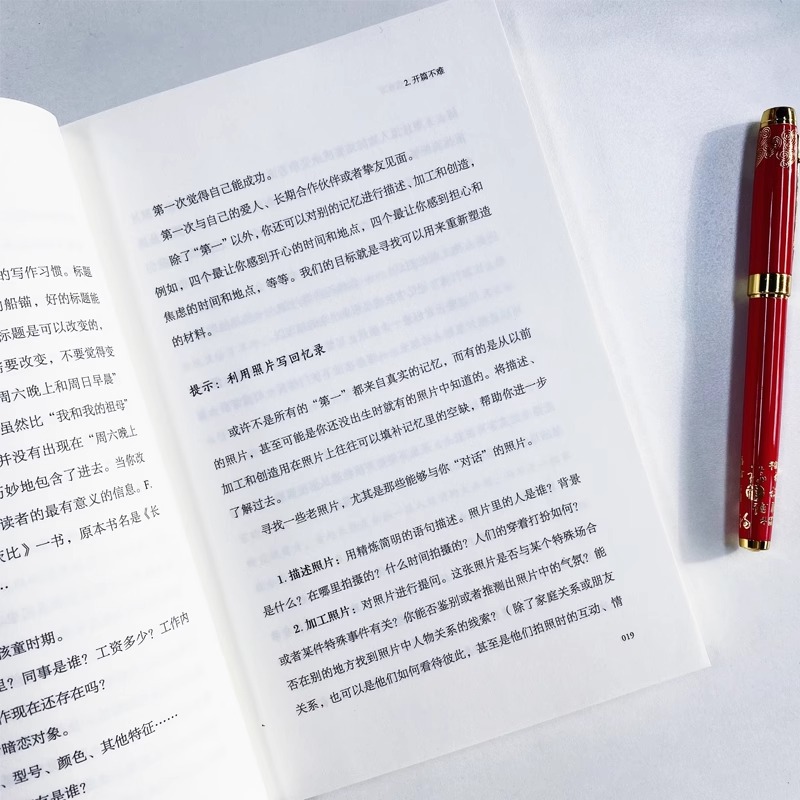 的写作习惯。标题
船锚，好的标题能
标题是可以改变的，
需要改变，不要觉得变
周六晚上和周日早晨”
虽然比“我和我的祖母”
并没有出现在“周六晚上
巧妙地包含了进去。当你改
读者的最有意义的信息。F.
比》一书，原本书名是《长
……
孩童时期。
里？同事是谁？工资多少？工作内
作现在还存在吗？
暗恋对象。
、型号、颜色、其他特征……
是谁？
2. 开篇不难
第一次觉得自己能成功。
第一次与自己的爱人、长期合作伙伴或者挚友见面。
除了“第一”以外，你还可以对别的记忆进行描述、加工和创造，
例如，四个最让你感到开心的时间和地点，四个最让你感到担心和
焦虑的时间和地点，等等。我们的目标就是寻找可以用来重新塑造
的材料。
提示：利用照片写回忆录
或许不是所有的“第一”都来自真实的记忆，而有的是从以前
的照片，甚至可能是你还没出生时就有的照片中知道的。将描述、
加工和创造用在照片上往往可以填补记忆里的空缺，帮助你进一步
了解过去。
寻找一些老照片，尤其是那些能够与你“对话”的照片。
1. 描述照片：用精炼简明的语句描述。照片里的人是谁？背景
是什么？在哪里拍摄的？什么时间拍摄的？人们的穿着打扮如何？
2. 加工照片：对照片进行提问。这张照片是否与某个特殊场合
或者某件特殊事件有关？你能否鉴别或者推测出照片中的气氛？能
否在别的地方找到照片中人物关系的线索？（除了家庭关系或朋友
关系，也可以是他们如何看待彼此，甚至是他们拍照时的互动、情
019